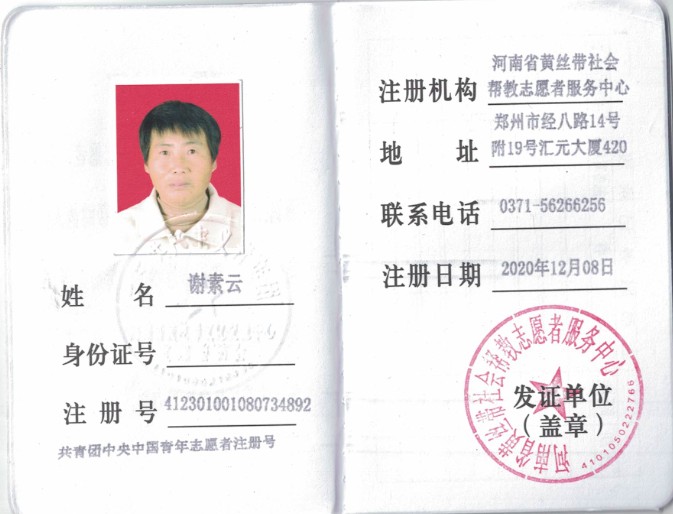 姓 名 谢素云
身份证号
注 册 号 412301001080734892
共青团中央中国青年志愿者注册号
注册机构 河南省黄丝带社会
帮教志愿者服务中心
地 址 郑州市经八路14号
附19号汇元大厦420
联系电话 0371-56266256
注册日期 2020年12月08日
河南省黄丝带社会帮教志愿者服务中心
发证单位
（盖章）
4101050222766